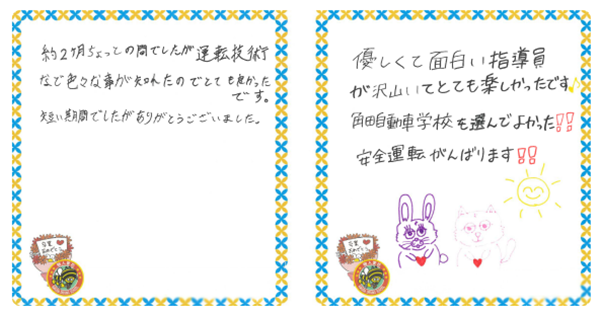 約2ヶ月ちょっとの間でしたが運転技術
など色々な事が知れたのでとても良かった
です。
短い期間でしたがありがとうございました。
卒業
おめでとう
優しくて面白い指導員
が沢山いてとても楽しかったです♪
角田自動車学校を選んでよかった!!
安全運転がんばります!!
卒業
おめでとう